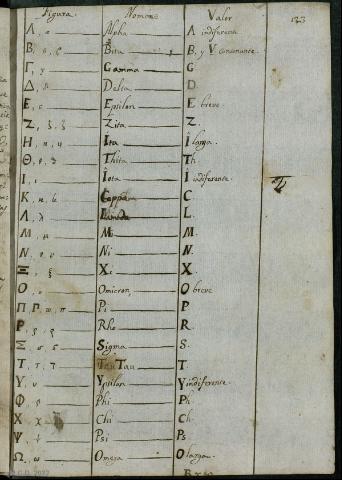 Figura. Nomone Valor 123
Λ, α Alpha A indiferente
B, ϐ, β Bita B, y V consonante.
Γ, γ Gamma G
Δ, δ Delta D
E, ε Epsilon E breve
Z, ζ, ξ Zita Z.
H, η, η Ita Î larga.
Θ, θ, ϑ Thita Th.
I, ι Iota Î indiferente.
K, κ, ϰ Cappa C.
Λ, λ Lamda L.
M, μ Mi M.
N, ν, υ Ni N.
Ξ, ξ Xi X
O, ο Omicron, O breve
Π Π, ϖ, π Pi P.
P, ρ, ρ Rho R.
Σ, σ, ς Sigma S.
T, τ, 7 Tau T
Y, υ Ypsilon Y indiferente.
Φ, φ Phi Ph.
X, χ Chi Ch.
Ψ, ψ Psi Ps
Ω, ω Omega O larga.